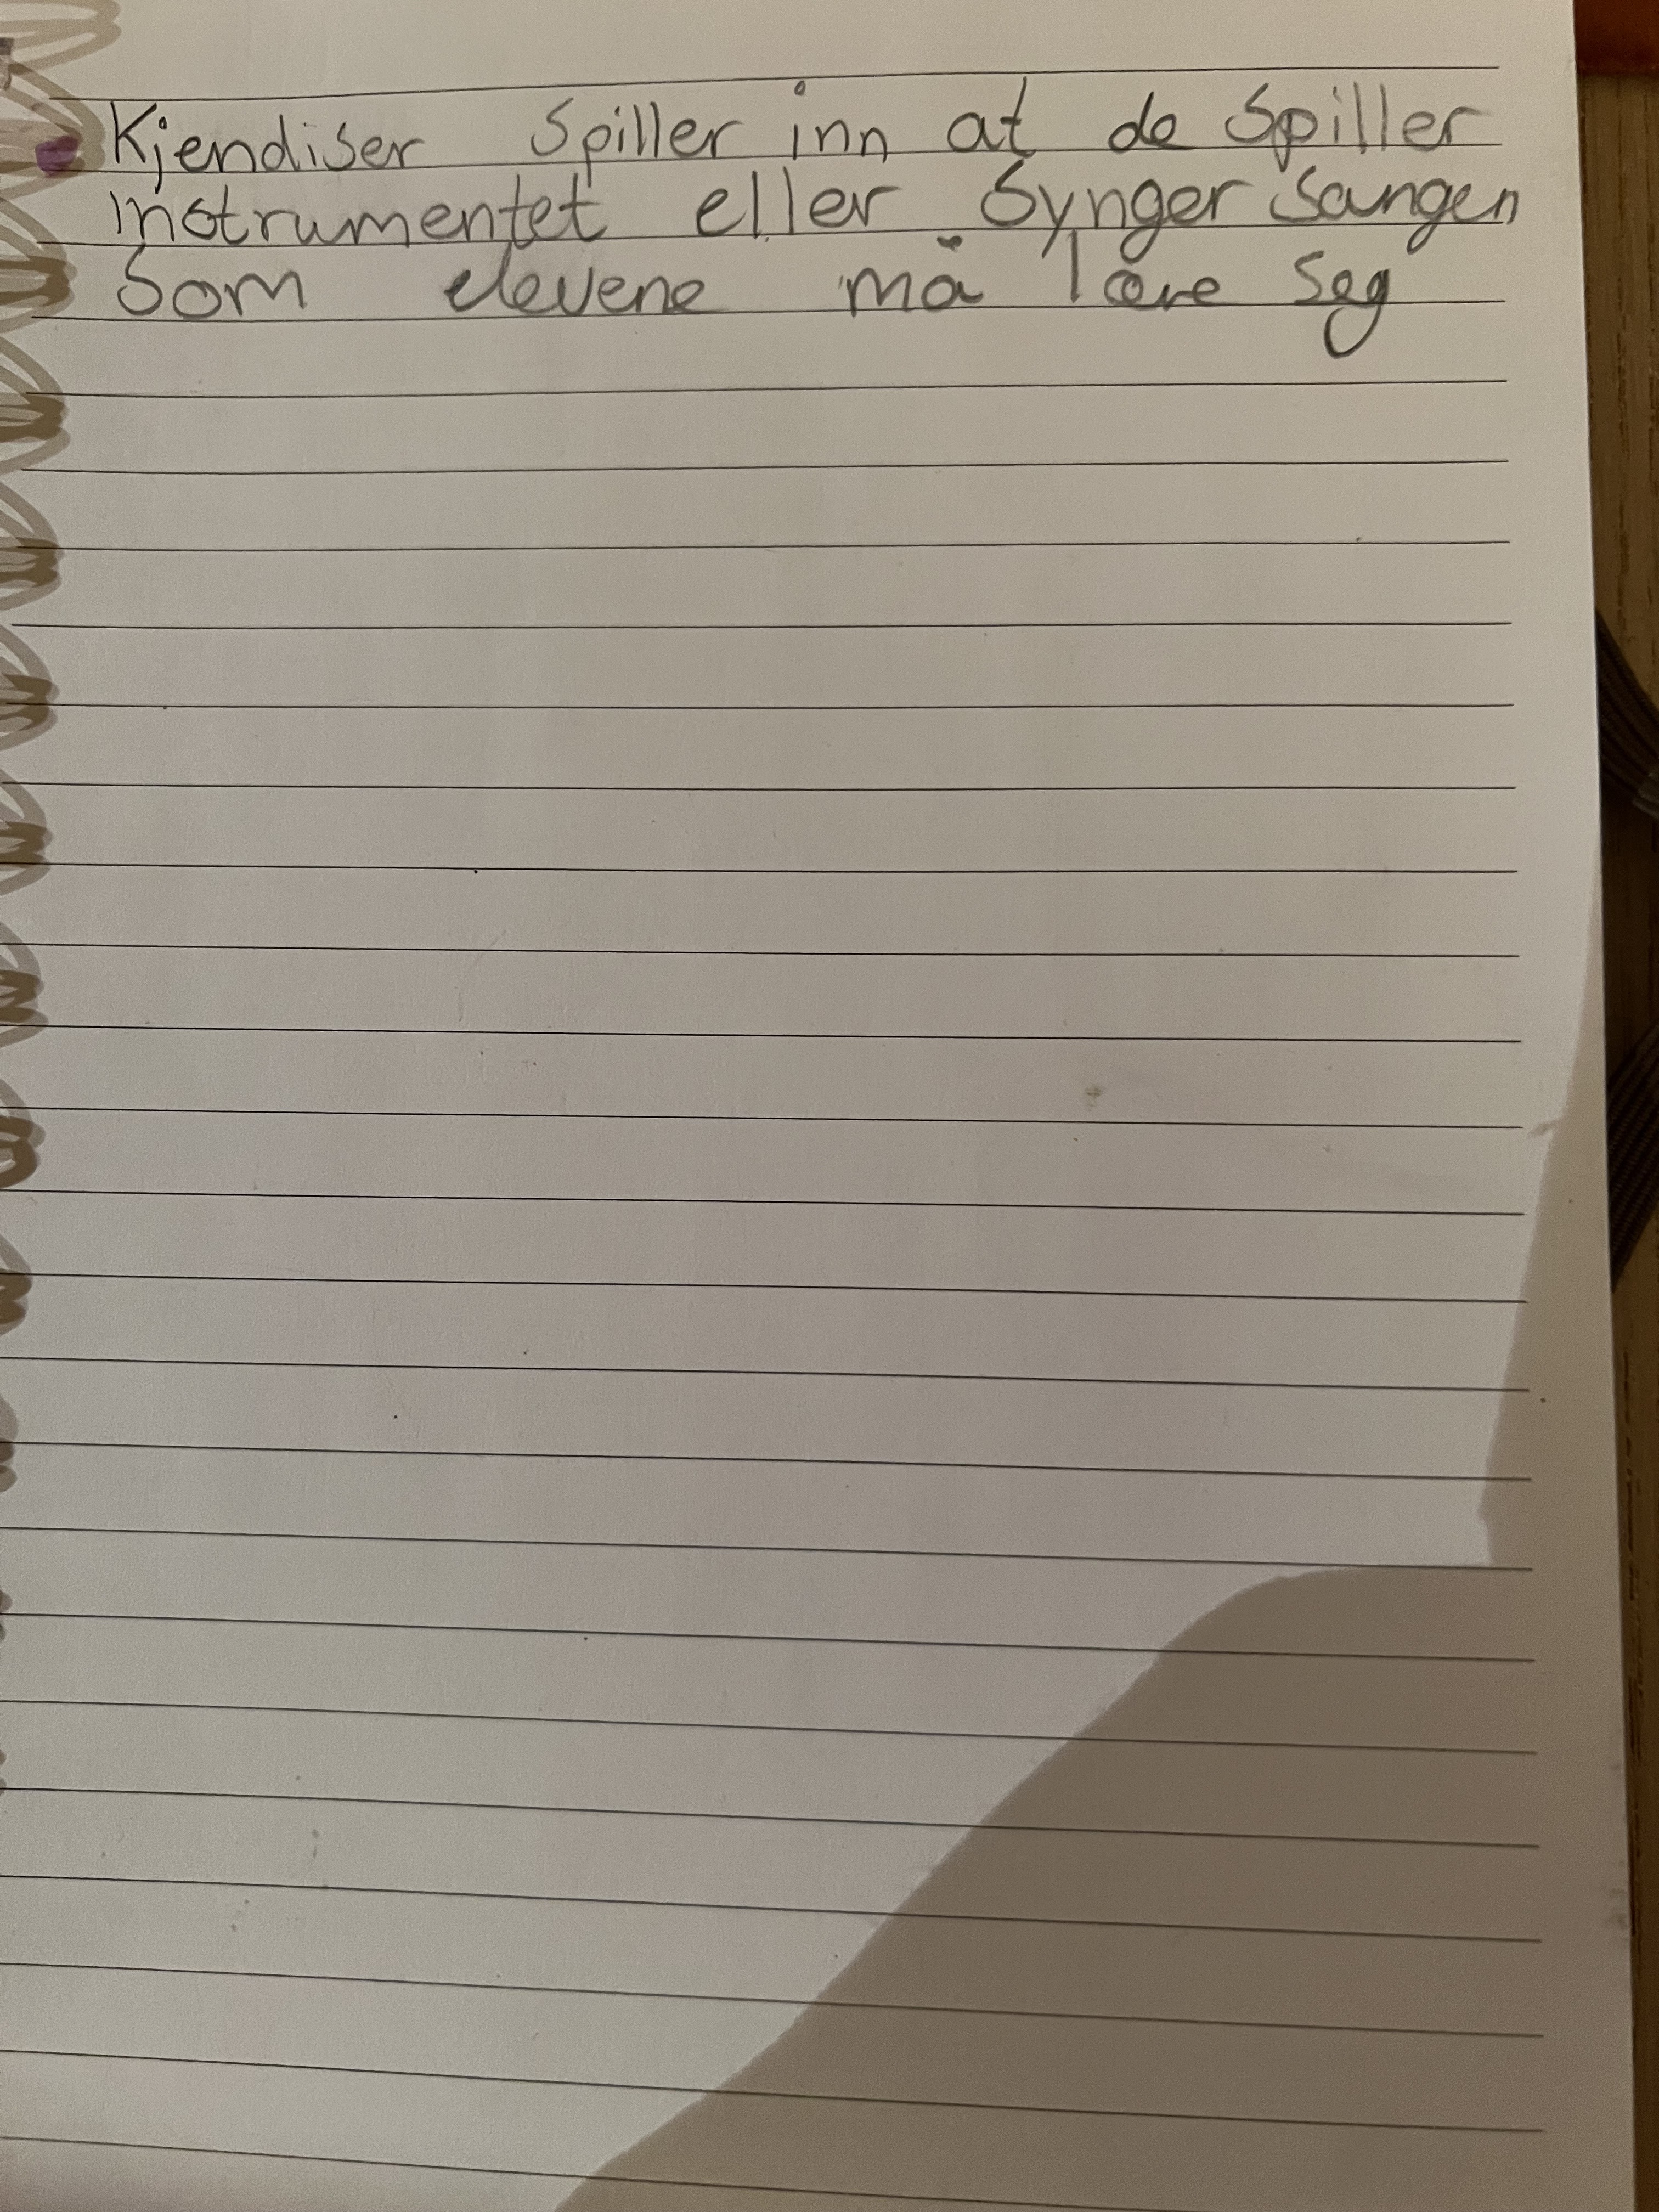 Kjendiser spiller inn at de spiller
instrumentet eller synger sangen
Som elevene må lære seg